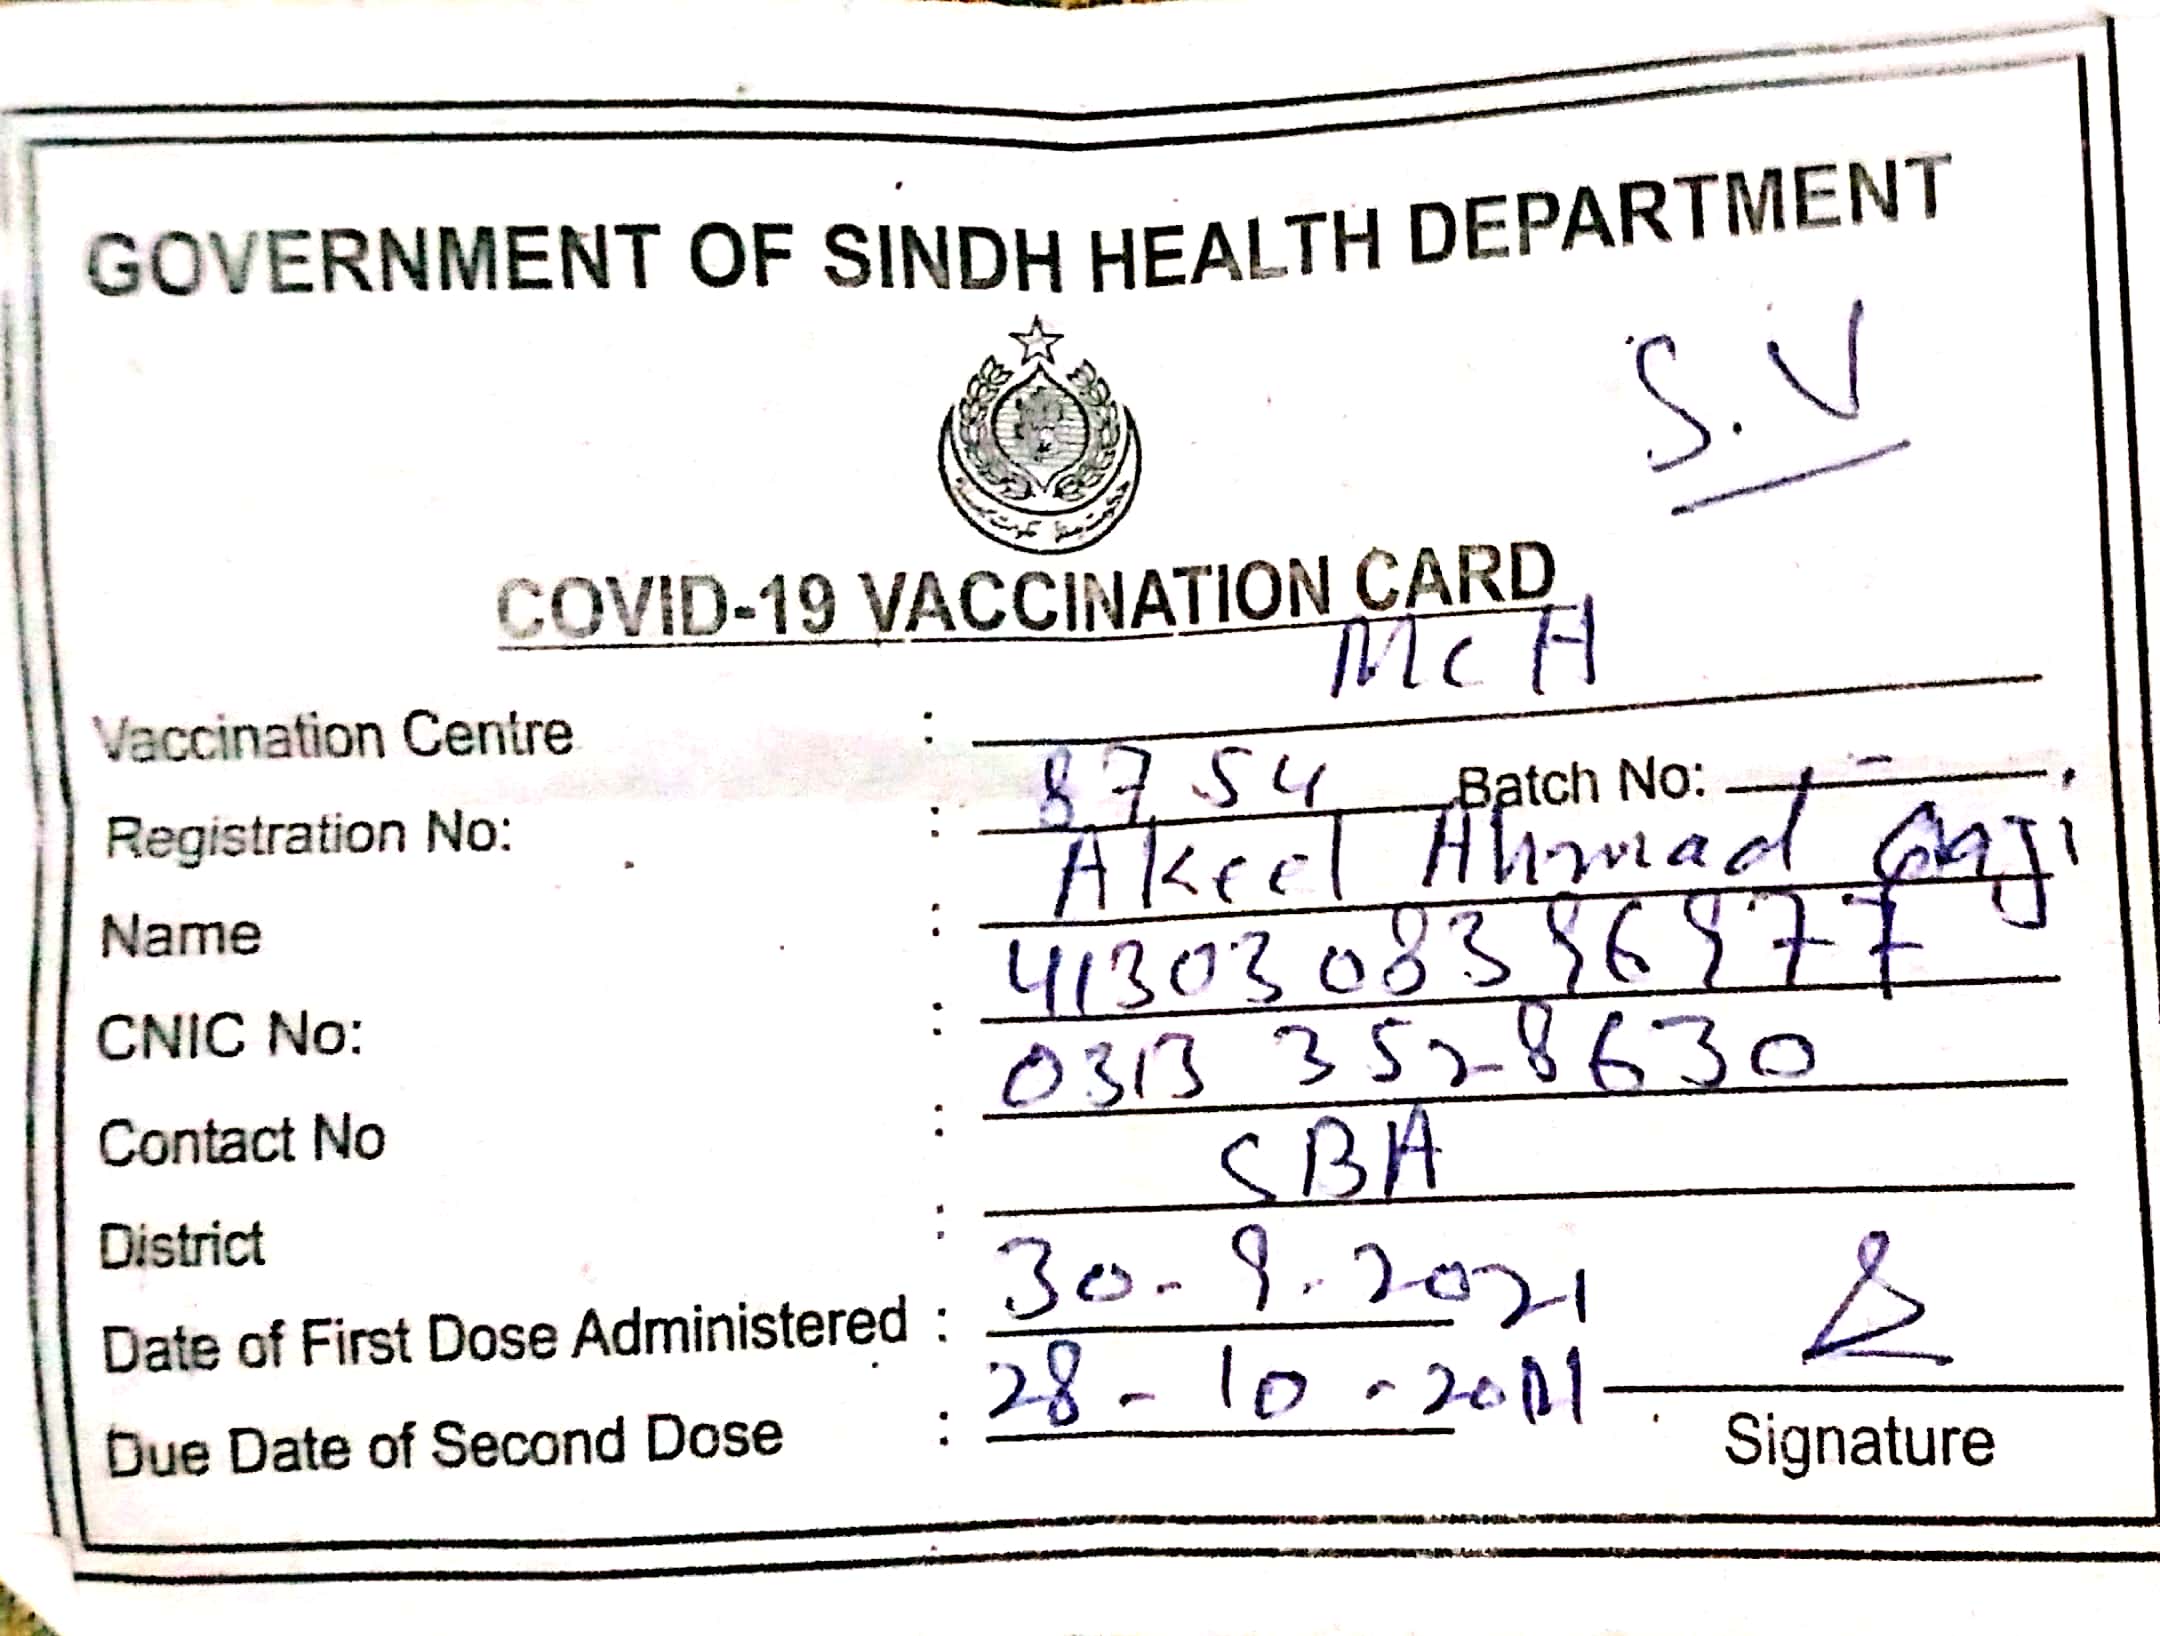 GOVERNMENT OF SINDH HEALTH DEPARTMENT
S.V
COVID-19 VACCINATION CARD
Vaccination Centre : MCH
Registration No: : 8754 Batch No: -
Name : Akeel Ahmad
CNIC No: : 4130308396977
Contact No : 0313 3528630
District : SBA
Date of First Dose Administered : 30-9-2021
Due Date of Second Dose : 28-10-2021
Signature